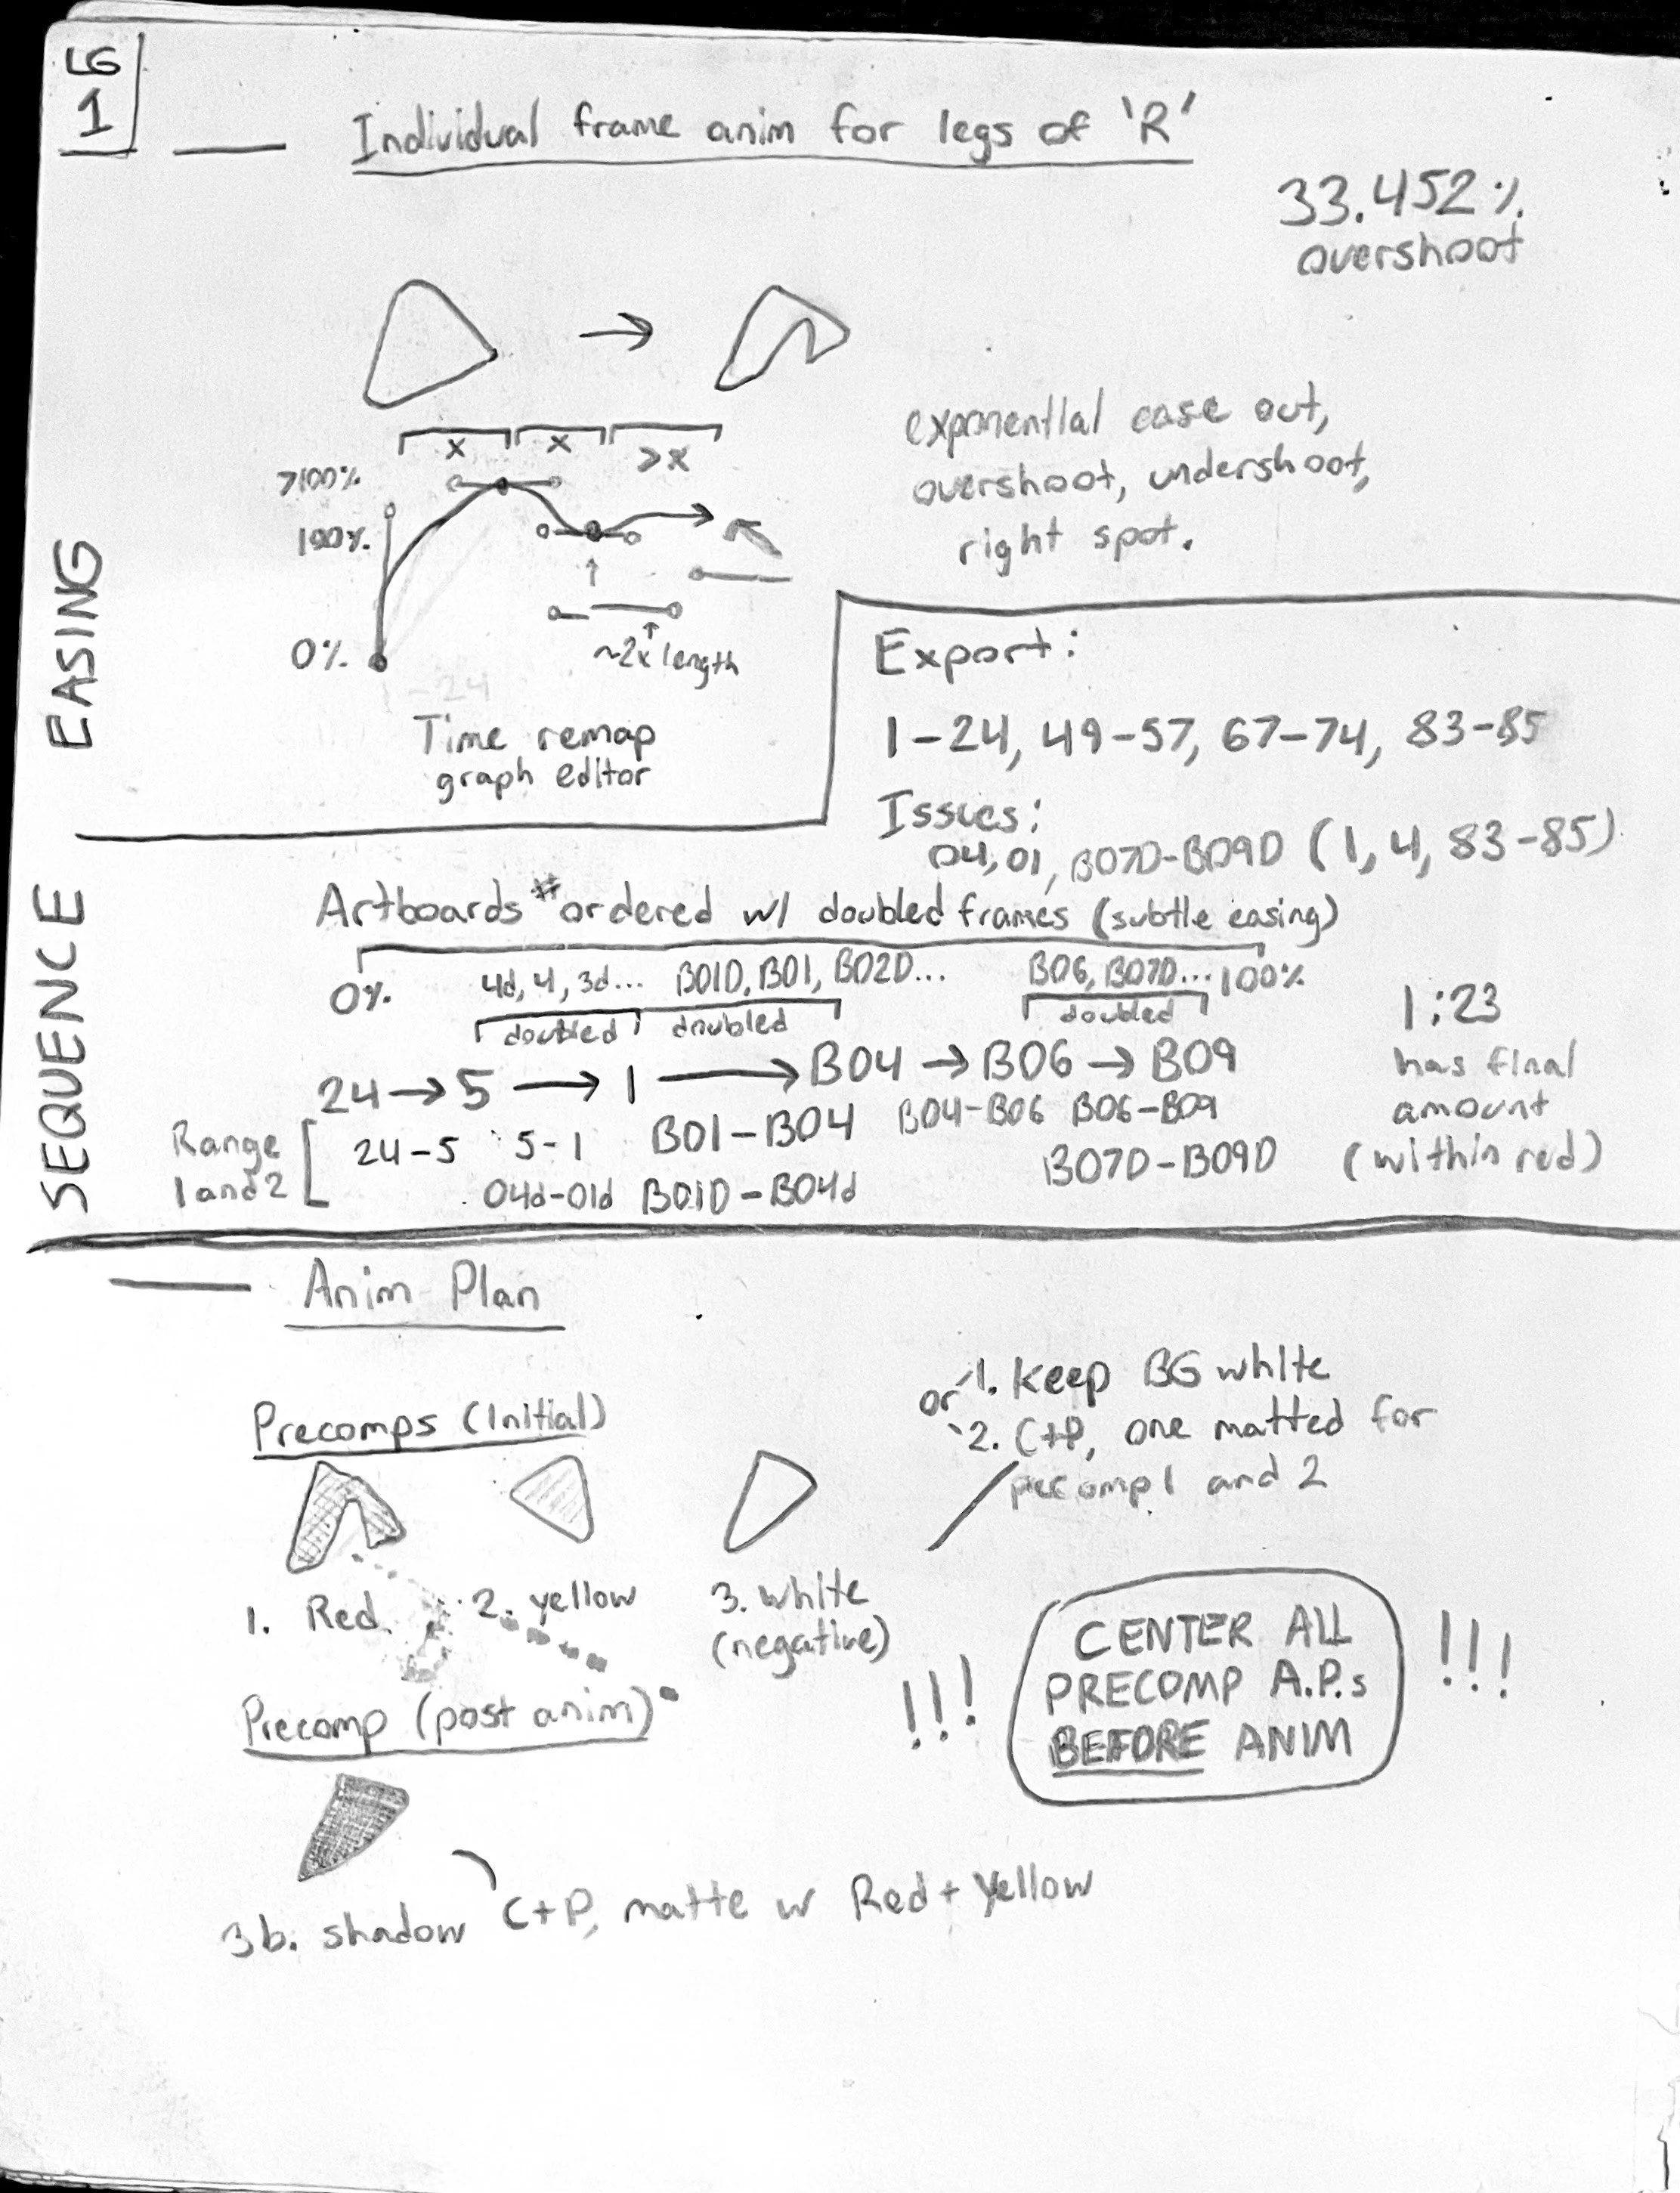 LG
1
Individual frame anim for legs of 'R'
33.452%
overshoot
EASING
x x >x
>100%
100%
0%
~2x length
1-24
Time remap
graph editor
exponential ease out,
overshoot, undershoot,
right spot.
Export:
1-24, 49-57, 67-74, 83-85
Issues:
04, 01, B07D-B09D (1, 4, 83-85)
SEQUENCE
Artboards # ordered w/ doubled frames (subtle easing)
0% 4d, 4, 3d... B01D, B01, B02D... B06, B07D... 100%
doubled doubled doubled
24 → 5 → 1 → B04 → B06 → B09
Range
1 and 2
24-5 5-1 B01-B04 B04-B06 B06-B09
04d-01d B01D-B04d B07D-B09D
1:23
has final
amount
(within red)
Anim Plan
Precomps (Initial)
1. Red
2. yellow
3. white
(negative)
or 1. Keep BG white
2. C+P, one matted for
precomp 1 and 2
!!! CENTER ALL !!!
PRECOMP A.P.s
BEFORE ANIM
Precomp (post anim)
3b. shadow
C+P, matte w Red + Yellow